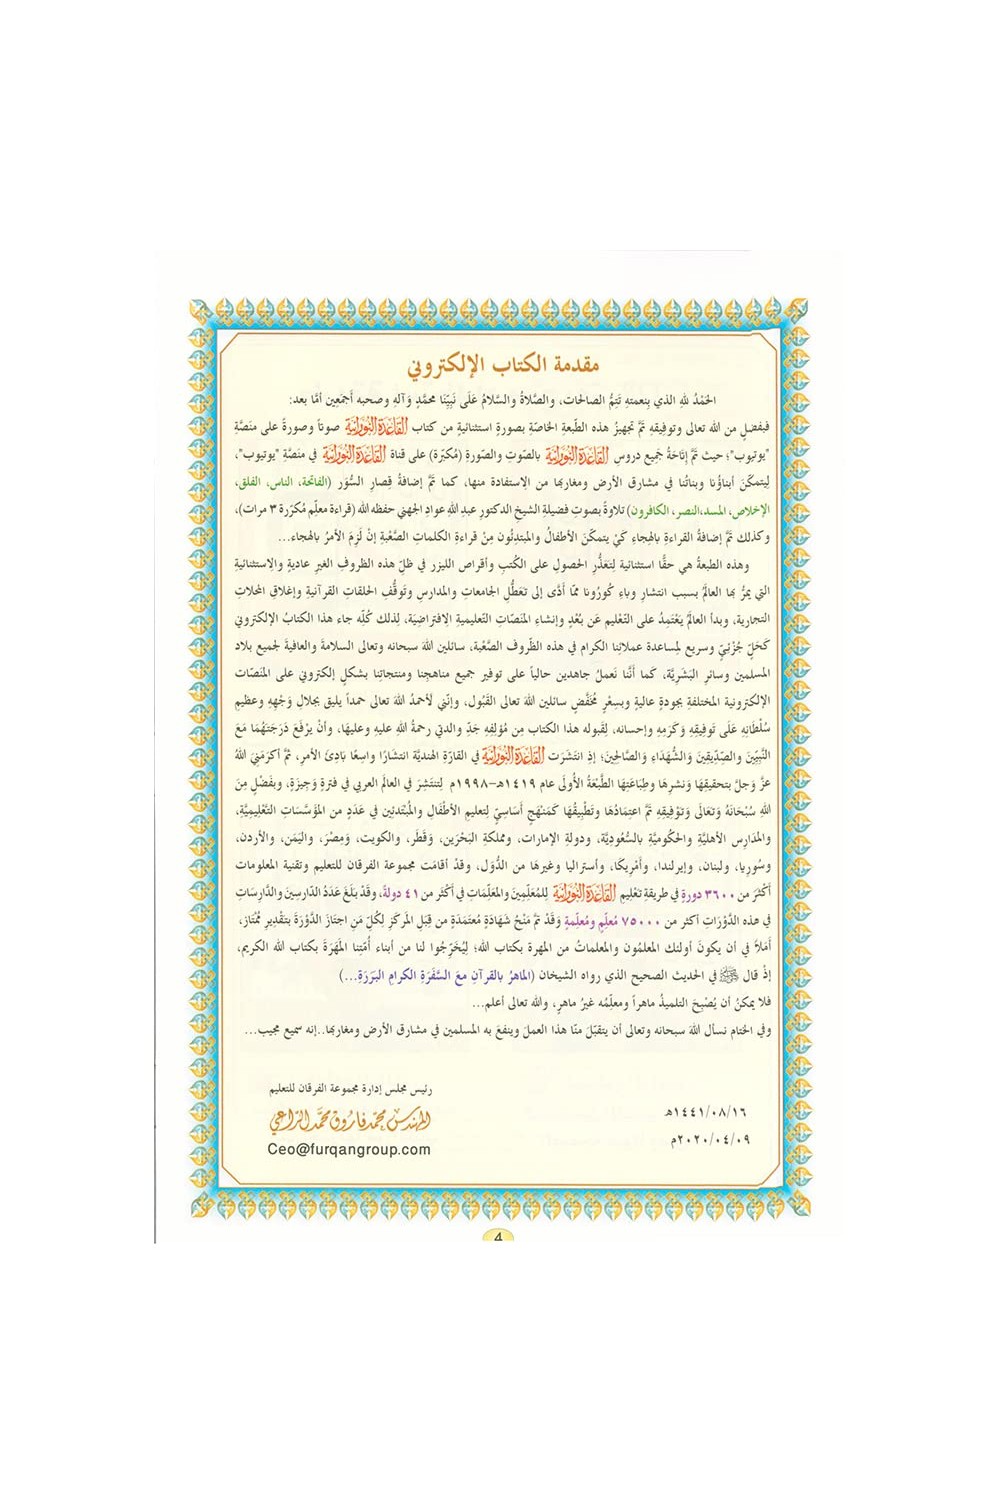 مقدمة الكتاب الإلكتروني
الحَمْدُ للهِ الذي بِنعمتهِ تَتِمُّ الصالحات، والصَّلاةُ والسَّلامُ عَلَى نَبِيِّنَا محمَّدٍ وَآلهِ وصحبه أَجمَعِين أمَّا بعد:
فبفضلٍ من الله تعالى وتوفيقِهِ تَمَّ تجهيزُ هذه الطّبعةِ الخاصّةِ بصورةٍ استثنائيةٍ من كتاب القَاعِدَة النُّورَانِيَّة صوتاً وصورةً على منصَّةِ
"يوتيوب"؛ حيث تمَّ إتَاحَةُ جَميع دروسِ القَاعِدَة النُّورَانِيَّة بالصّوتِ والصّورةِ (مُكبّرة) على قناة القَاعِدَة النُّورَانِيَّة في منصَّةِ "يوتيوب"،
لِيتمكّن أبناؤُنا وبناتُنا في مشارق الأرض ومغاربها من الاستفادة منها، كما تمَّ إضافةُ قِصارِ السُّوَر (الفاتحة، الناس، الفلق،
الإخلاص، المسد،النصر، الكافرون) تلاوةً بصوتِ فضيلةِ الشيخِ الدكتورِ عبدِ اللهِ عوادِ الجهني حفظه الله (قراءة معلِّم مُكرّرة ٣ مرات)،
وكذلك تمَّ إضافةُ القراءةِ بالهجاءِ كَيْ يتمكّن الأطفالُ والمبتدِئُون مِنْ قراءةِ الكلماتِ الصَّعْبةِ إنْ لَزِمَ الأمرُ بالهجاء...
وهذه الطبعةُ هي حقًّا استثنائية لِتعذُّرِ الحصولِ على الكُتبِ وأقراصِ الليزر في ظلِّ هذه الظروفِ الغيرِ عاديةٍ والاستثنائيةِ
التي يمرُّ بها العالمُ بسبب انتشارِ وباءِ كُورُونا ممّا أدَّى إلى تعَطُّلِ الجامعاتِ والمدارسِ وتَوقُّفِ الحلقاتِ القرآنيةِ وإغلاقِ المحلات
التجارية، وبدأ العالمُ يَعْتمِدُ على التّعْليم عَن بُعْدٍ وإنشاءِ المنَصّاتِ التّعليميةِ الافتراضيَة، لذلك كُلّه جاء هذا الكتابُ الإلكتروني
كَحَلٍّ جُزْئيٍّ وسريع لمساعدة عملائِنا الكرام في هذه الظّروف الصَّعْبة، سائلين الله سبحانه وتعالى السلامةَ والعافيةَ لجميع بلاد
المسلمين وسائرِ البَشَرِيَّة، كما أنَّنا نَعملُ جاهدين حالياً على توفير جميع مناهجنا ومنتجاتِنا بشكلٍ إلكتروني على المنَصّات
الإلكترونية المختلفةِ بجودةٍ عاليةٍ وبسِعْرٍ مُخَفَّضٍ سائلين الله تعالى القَبُول، وإنّني لأحمدُ الله تعالى حمداً يليق بجلالِ وَجْهِهِ وعظيمِ
سُلْطَانِهِ عَلَى تَوفيقِهِ وَكَرَمِهِ وإحسانه، لِقَبوله هذا الكتاب مِن مُؤلِفِهِ جَدّي والدتي رحمةُ اللهِ عليهِ وعليهَا، وأنْ يرْفَعَ دَرَجَتَهُمَا مَعَ
النَّبِيِّينَ والصِّدِّيقِينَ وَالشُّهَدَاءِ وَالصَّالِحِينَ؛ إذِ انتَشَرَت القَاعِدَة النُّورَانِيَّة في القارّةِ الهنديَّة انتشارًا واسِعًا بادِئ الأمرِ، ثمَّ أكرَمَنِيَ اللهُ
عَزَّ وَجلَّ بتحقيقِهَا وَنشرِهَا وطِبَاعَتِهَا الطَّبْعَةُ الأُولَى عام ١٤١٩هـ–١٩٩٨م لِتنتَشِرَ في العالم العربي في فترةٍ وَجِيزَةٍ، وبفَضْلٍ مِنَ
اللهِ سُبْحَانَهُ وَتعَالَى وَتَوْفيقِهِ تمَّ اعتِمَادُهَا وتَطْبِيقُهَا كَمَنْهَجٍ أَسَاسِيٍّ لِتعليمِ الأطْفَالِ والمُبْتدئين في عَدَدٍ من المُؤَسَّسَاتِ التَّعْلِيمِيَّةِ،
والمدَارِسِ الأهليَّةِ والحُكُومِيَّةِ بالسُّعُوديّة، ودولةِ الإمارات، ومملكةِ البَحْرَين، وَقَطَر، والكويت، وَمِصْرَ، واليَمَن، والأردن،
وسُوريا، ولبنان، وإيرلندا، وأَمْرِيكَا، وأستراليا وغيرهَا من الدُّوَل، وقدْ أقامَت مجموعة الفرقان للتعليم وتقنية المعلومات
أكثرَ من ٣٦٠٠ دورةٍ في طريقةِ تعْلِيم القَاعِدَة النُّورَانِيَّة للمُعَلِّمِينَ والمعَلِّمَات في أَكثر من ٤١ دولةً، وقدْ بَلَغَ عَدَدُ الدّارِسِينَ والدَّارِسَاتِ
في هذه الدَّوْرَاتِ أكثر من ٧٥٠٠٠ مُعلِّمٍ ومُعلِّمةٍ وَقَدْ تَمَّ مَنْحُ شَهَادَةٍ مُعتمَدَةٍ من قِبَلِ المَرْكَزِ لِكُلِّ مَنِ اجتازَ الدَّوْرَةَ بتَقْدِيرِ مُمْتَاز،
أمَلاً في أن يكونَ أولئك المعلِّمُون والمعلماتُ من المهرة بكتاب الله؛ لِيُخَرِّجُوا لنا من أبناء أُمَّتِنا المَهَرَةَ بكتاب الله الكريم،
إذْ قال ﷺ في الحديث الصحيح الذي رواه الشيخان (الماهرُ بالقرآنِ معَ السَّفَرَةِ الكرامِ البَرَرَةِ...)
فلا يمكنُ أن يُصْبِحَ التلميذُ ماهراً ومعلِّمُه غيرُ ماهرٍ، والله تعالى أعلم...
وفي الختام نسأل الله سبحانه وتعالى أن يتقبّل منّا هذا العملَ وينفعَ به المسلمين في مشارق الأرض ومغاربها..إنه سميع مجيب...
رئيس مجلس إدارة مجموعة الفرقان للتعليم
المهندس محمّد فاروق محمَّد الرّاعي
Ceo@furqangroup.com
١٤٤١/٠٨/١٦هـ
٢٠٢٠/٠٤/٠٩م
4